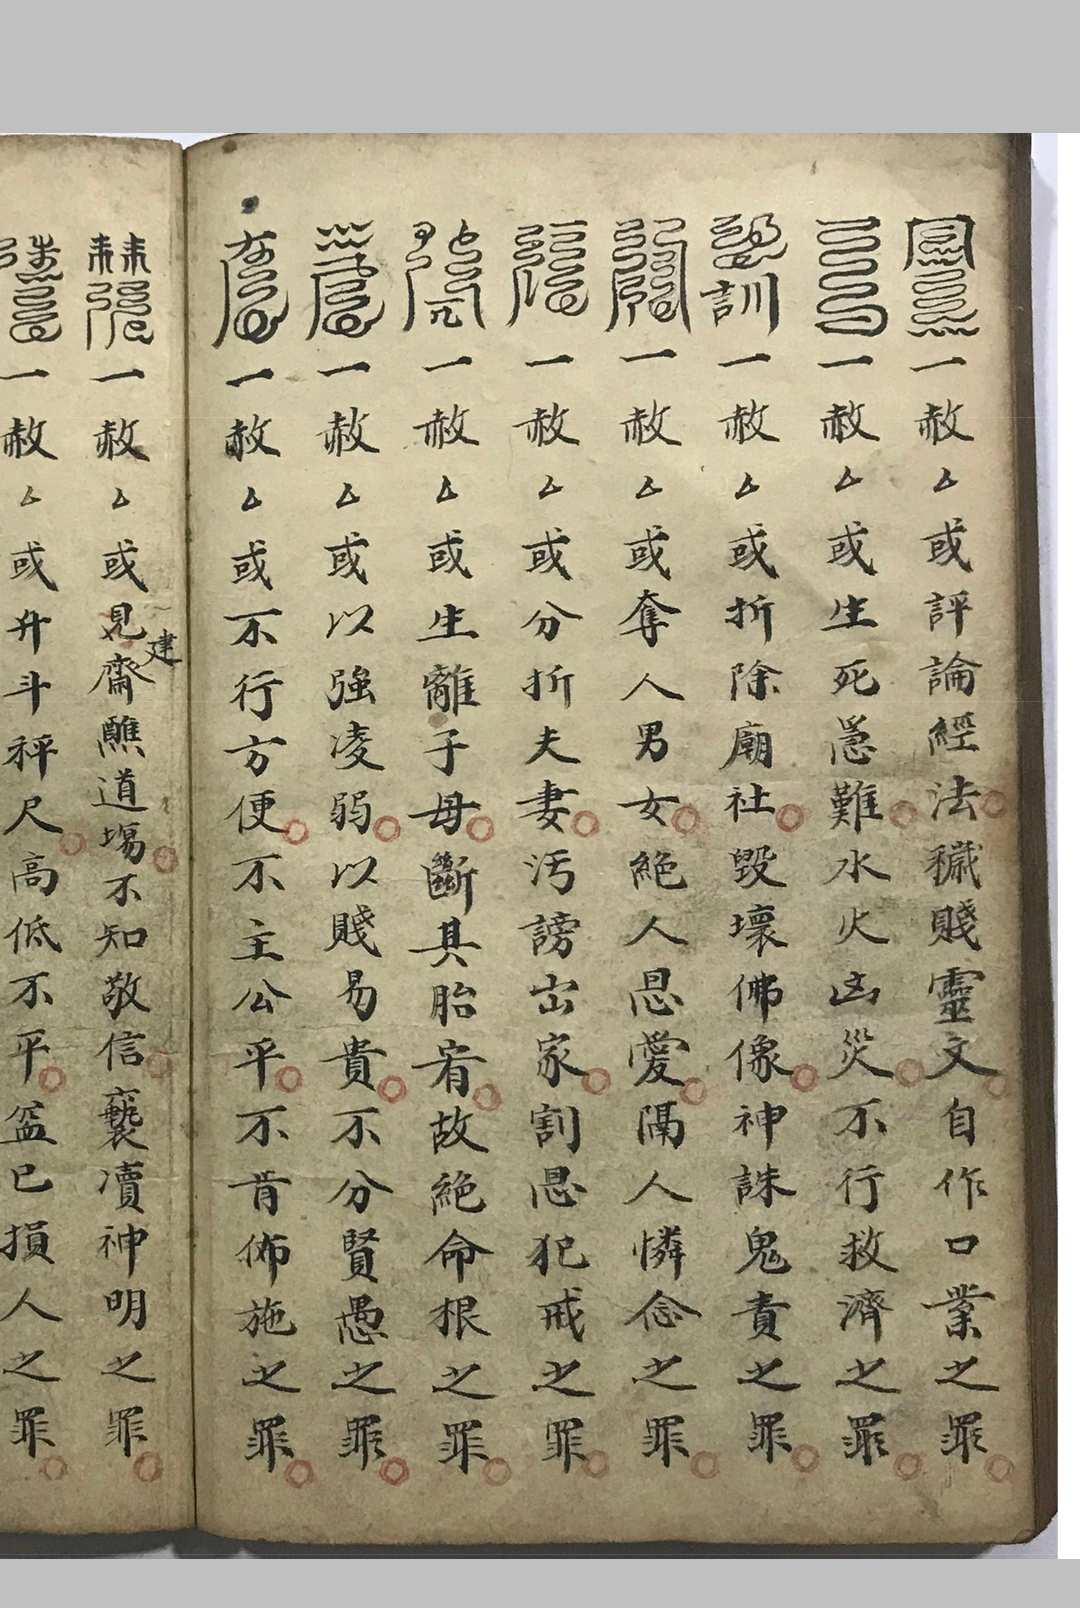 一赦厶或評論經法穢賤靈文自作口業之罪
一赦厶或生死急難水火凶災不行救濟之罪
訓一赦厶或折除廟社毀壞佛像神誅鬼責之罪
一赦厶或奪人男女絕人恩愛隔人憐念之罪
一赦厶或分折夫妻污謗出家割恩犯戒之罪
一赦厶或生離子母斷其胎宥故絕命根之罪
一赦厶或以強凌弱以賤易貴不分賢愚之罪
一赦厶或不行方便不主公平不肯佈施之罪
一赦厶或見建齋醮道場不知敬信褻瀆神明之罪
一赦厶或升斗秤尺高低不平益已損人之罪